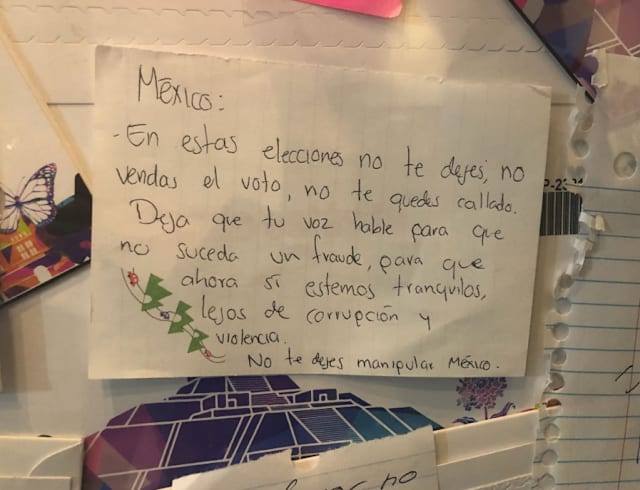 México:
- En estas elecciones no te dejes, no
vendas el voto, no te quedes callado.
Deja que tu voz hable para que
no suceda un fraude, para que
ahora si estemos tranquilos,
lejos de corrupción y
violencia.
No te dejes manipular México.
no